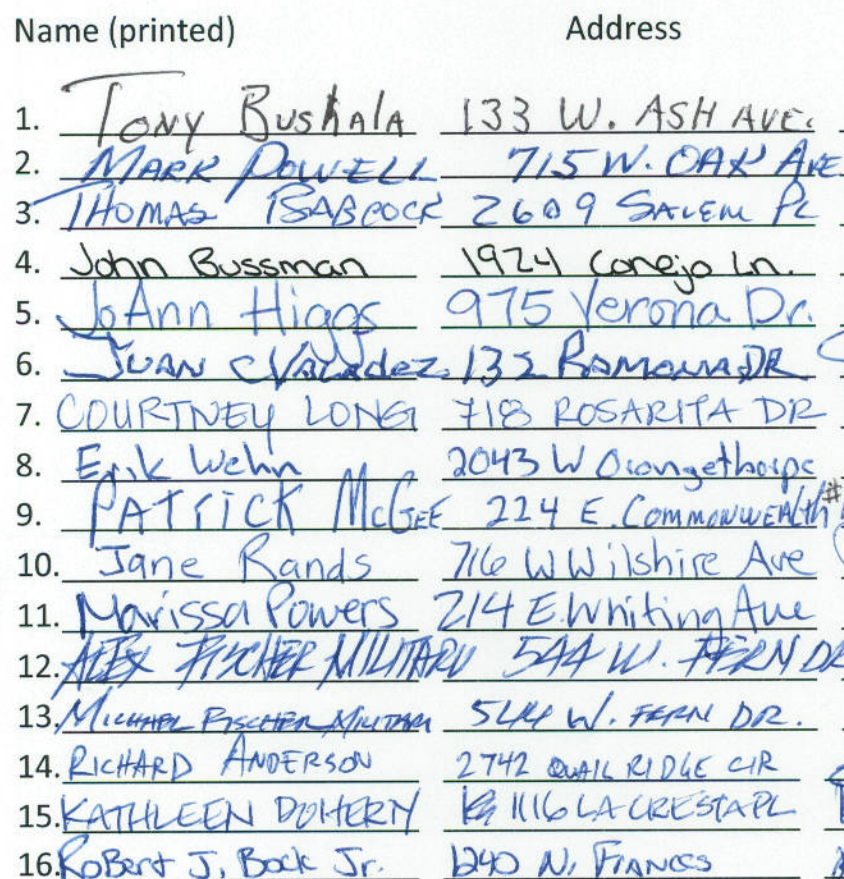 Name (printed) Address
1. Tony Bushala 133 W. ASH AVE.
2. MARK POWELL 715 W. OAK AVE
3. THOMAS BABCOCK 2609 SALEM PL
4. John Bussman 1924 Conejo Ln.
5. JoAnn Higgs 975 Verona Dr.
6. JUAN C Valadez 132 RAMONA DR
7. COURTNEY LONG 718 ROSARITA DR
8. Erik Wehn 2043 W Orangethorpe
9. PATRICK McGEE 224 E. COMMONWEALTH #
10. Jane Rands 716 W Wilshire Ave
11. Marissa Powers 214 E. Whiting Ave
12. ALEX FISCHER MILITARU 544 W. FERN DR
13. MICHAEL FISCHER MILITARU 544 W. FERN DR.
14. RICHARD ANDERSON 2742 QUAIL RIDGE CIR
15. KATHLEEN DOHERTY 1116 LA CRESTA PL
16. RoBert J. Bock Jr. 1240 N.